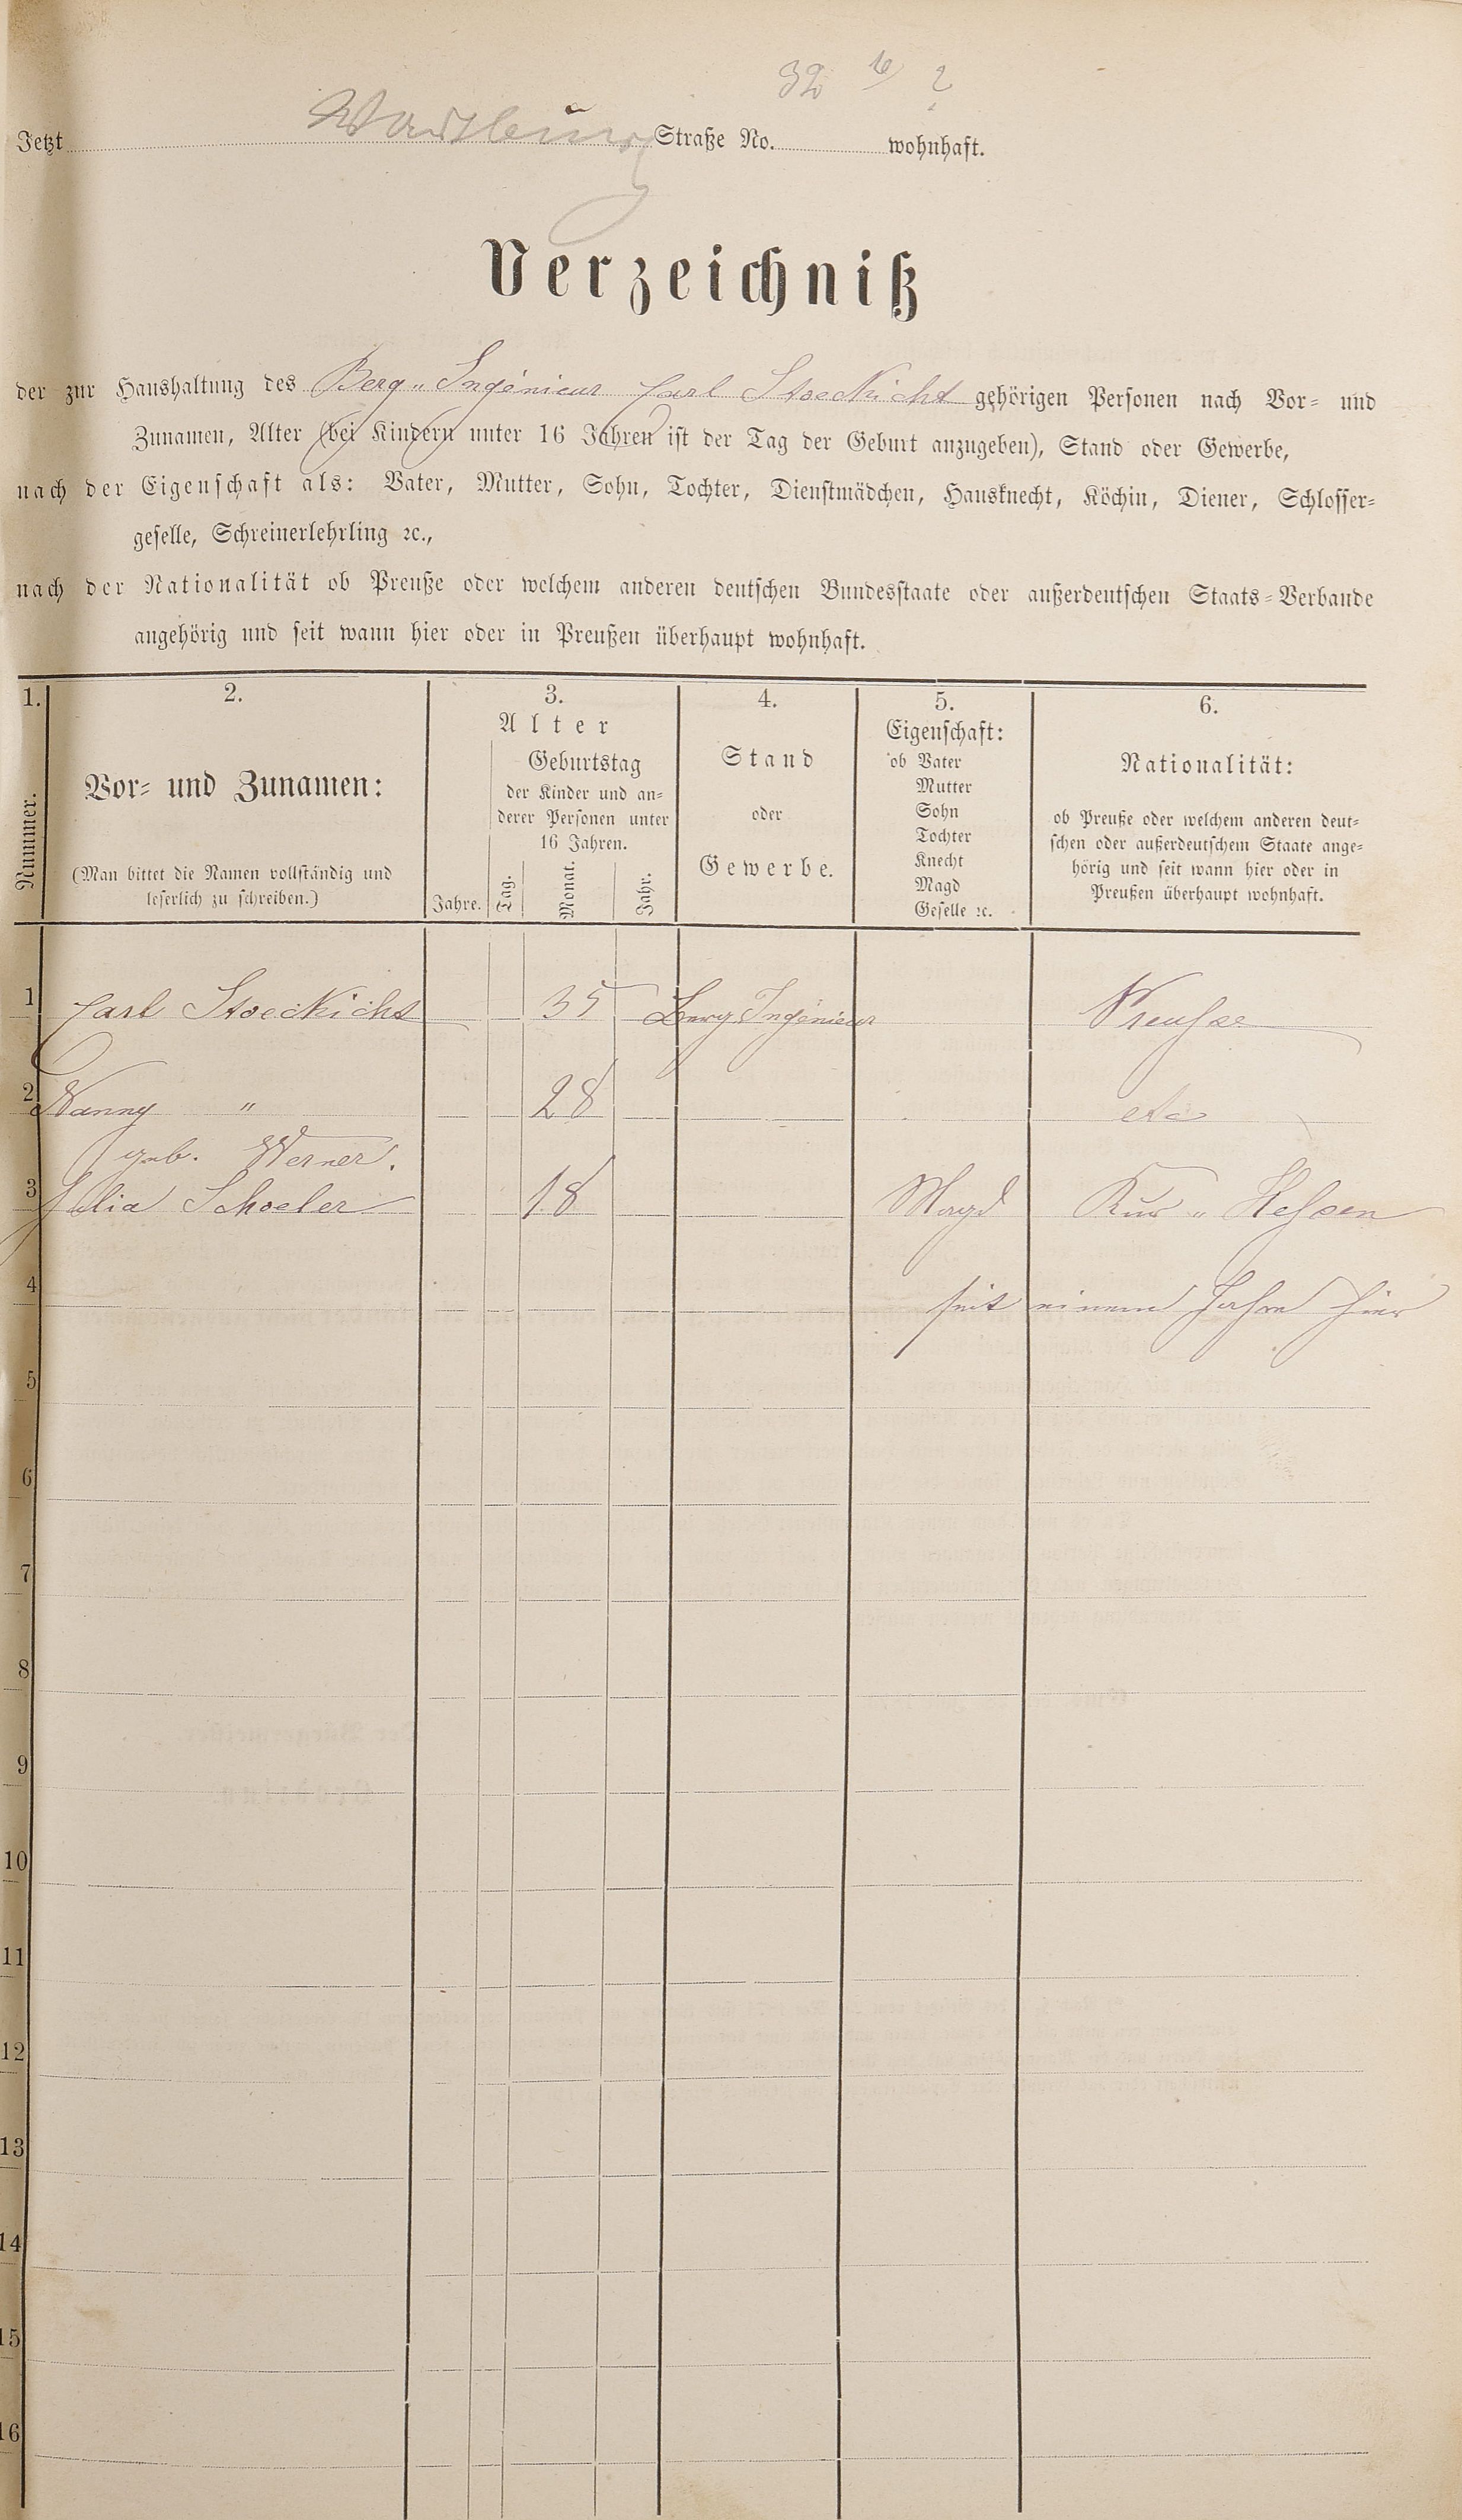 32
Jetzt Straße No. wohnhaft.
Verzeichniß
der zur Haushaltung des Berg-Ingénieur Carl Stoeckicht gehörigen Personen nach Vor- und
Zunamen, Alter (bei Kindern unter 16 Jahren ist der Tag der Geburt anzugeben), Stand oder Gewerbe,
nach der Eigenschaft als: Vater, Mutter, Sohn, Tochter, Dienstmädchen, Hausknecht, Köchin, Diener, Schlosser-
geselle, Schreinerlehrling ꝛc.,
nach der Nationalität ob Preuße oder welchem anderen deutschen Bundesstaate oder außerdeutschen Staats-Verbande
angehörig und seit wann hier oder in Preußen überhaupt wohnhaft.
1. Nummer.
2.
Vor- und Zunamen:
(Man bittet die Namen vollständig und
leserlich zu schreiben.)
3.
Alter
Geburtstag
der Kinder und an-
derer Personen unter
16 Jahren.
Jahre. Tag. Monat. Jahr.
4.
Stand
oder
Gewerbe.
5.
Eigenschaft:
ob Vater
Mutter
Sohn
Tochter
Knecht
Magd
Geselle ꝛc.
6.
Nationalität:
ob Preuße oder welchem anderen deut-
schen oder außerdeutschem Staate ange-
hörig und seit wann hier oder in
Preußen überhaupt wohnhaft.
1 Carl Stoeckicht 35 Berg-Ingénieur Preuße
2 Nanny " 28
geb. Werner.
3 Julia Schoeler 18 Magd Kur-Hessen
4 seit einem Jahre hier
5
6
7
8
9
10
11
12
13
14
15
16